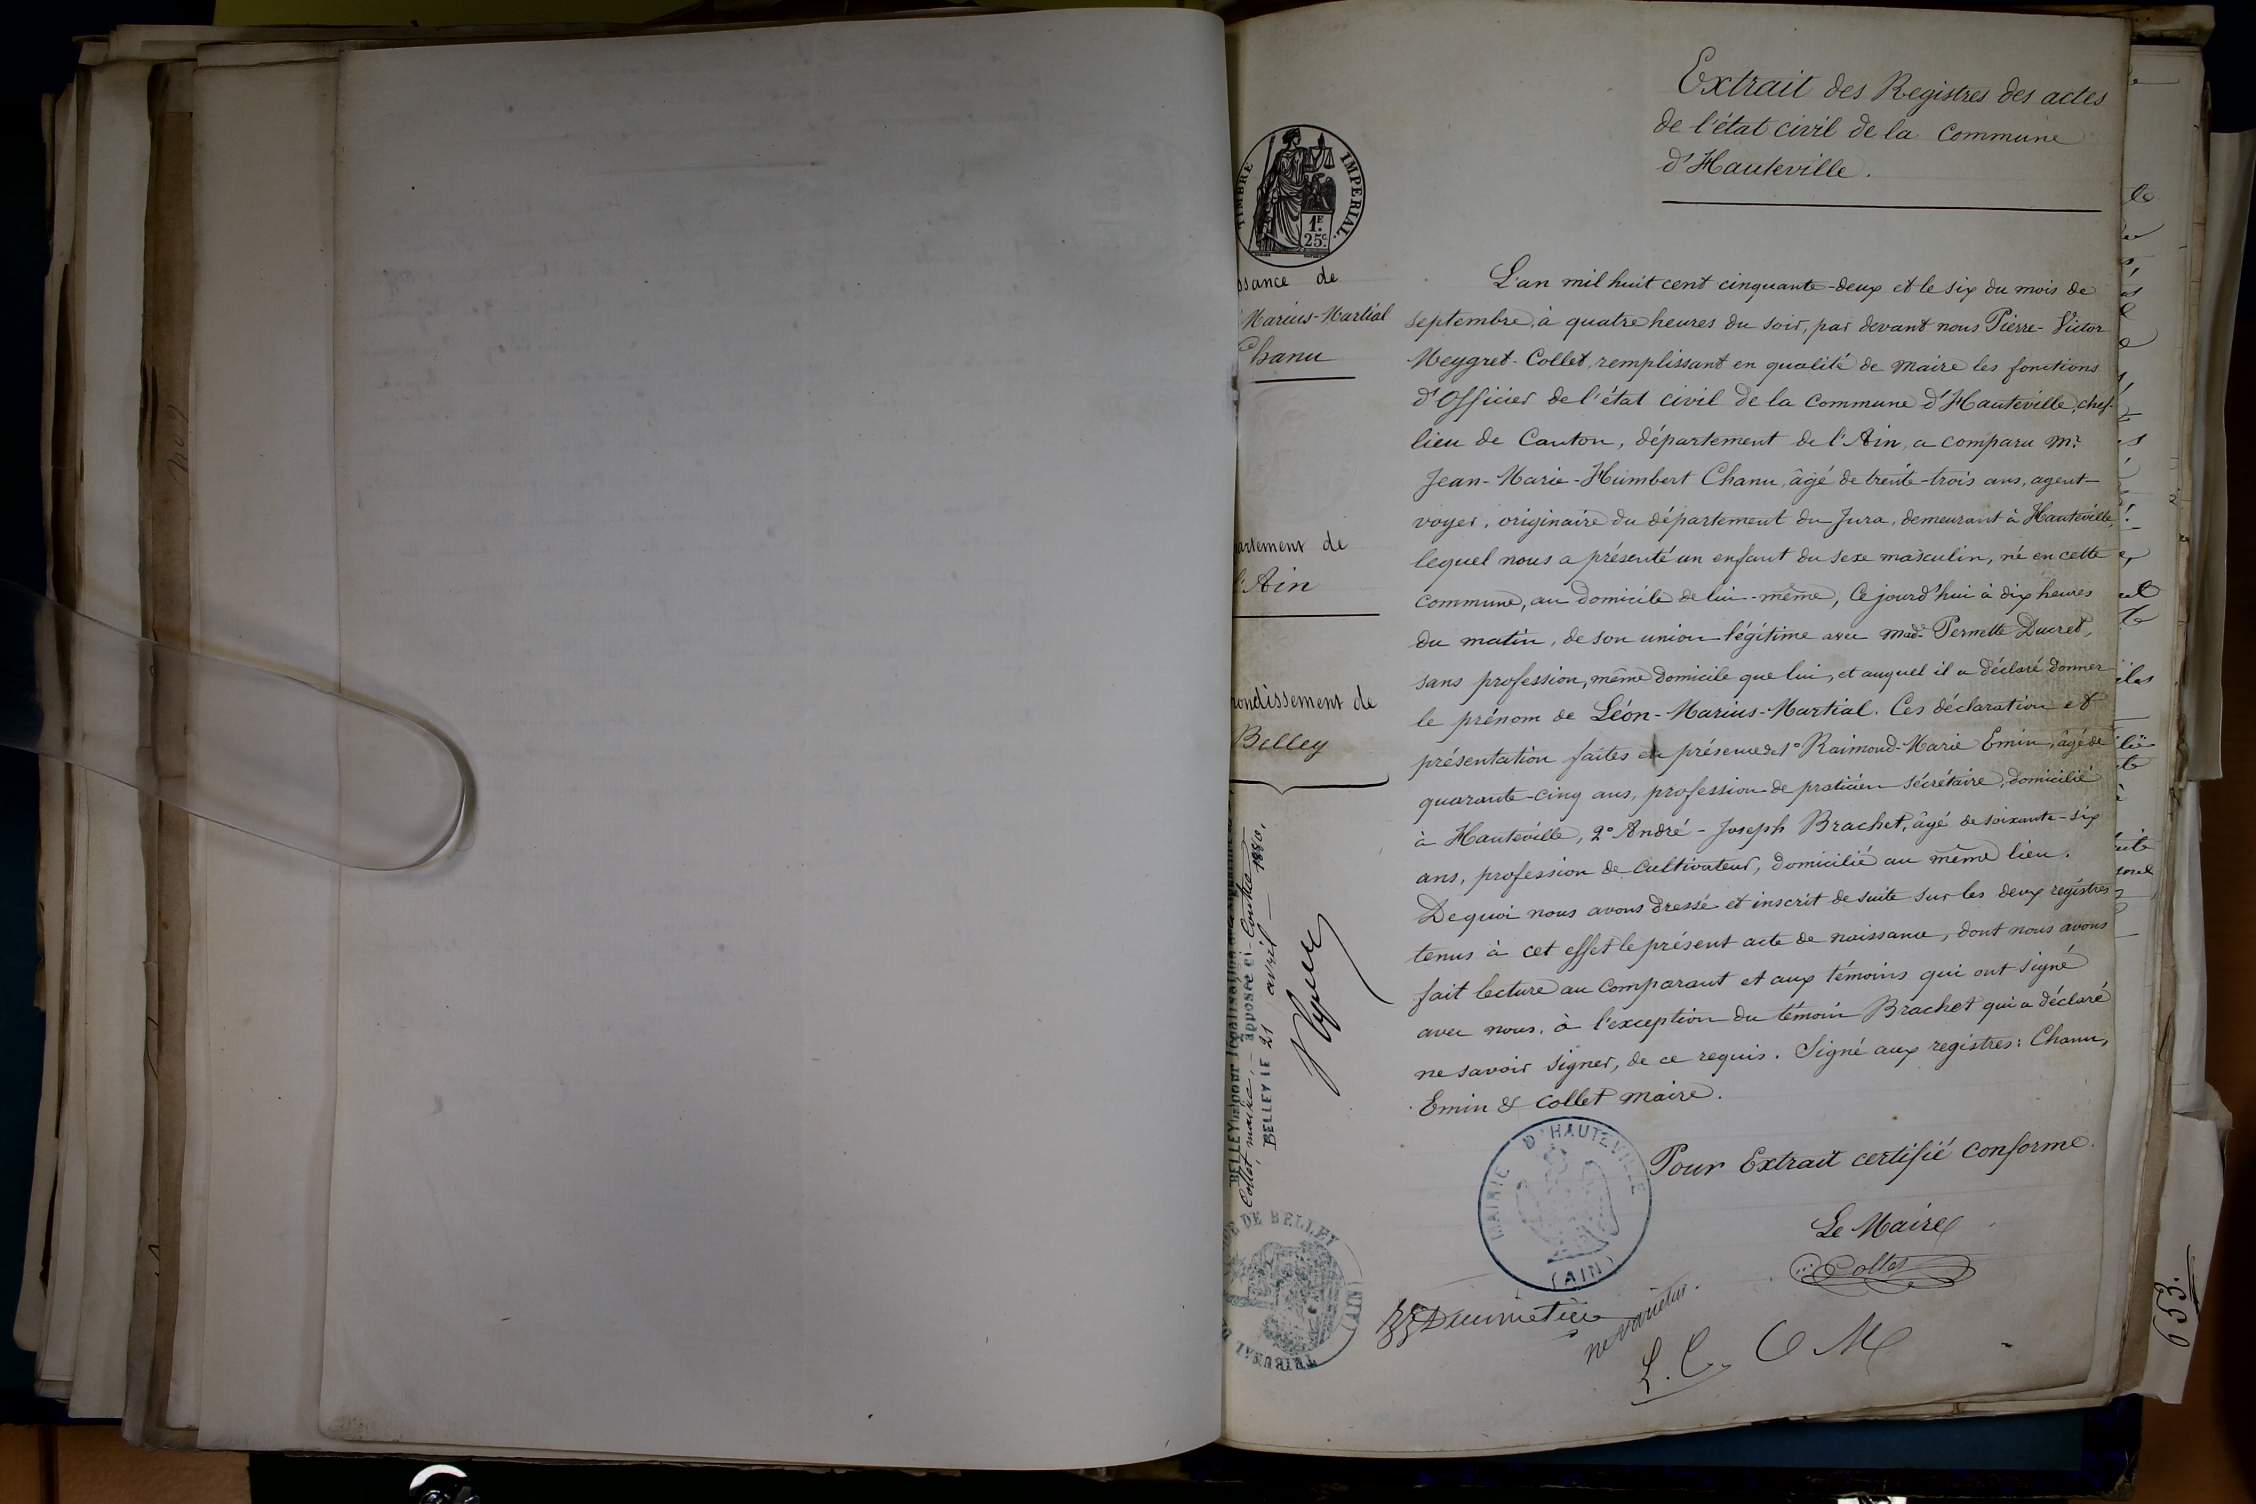 Extrait des Registres des actes
de l'état civil de la commune
d'Hauteville.
TIMBRE IMPERIAL.
1F.
25c.
ssance de
Marius-Martial
Chanu
artement de
l'Ain
ondissement de
Belley
L'an mil huit cent cinquante-deux et le six du mois de
septembre, à quatre heures du soir, par devant nous Pierre-Victor
Meygret-Collet, remplissant en qualité de maire les fonctions
d'Officier de l'état civil de la commune d'Hauteville, chef-
lieu de Canton, département de l'Ain, a comparu Mr
Jean-Marie-Humbert Chanu, âgé de trente-trois ans, agent-
voyer, originaire du département du Jura, demeurant à Hauteville,
lequel nous a présenté un enfant du sexe masculin, né en cette
commune, au domicile de lui-même, Ce jourd'hui à dix heures
du matin, de son union légitime avec Made Pernette Ducret,
sans profession, même domicile que lui, et auquel il a déclaré donner
le prénom de Léon-Marius-Martial. Ces déclaration et
présentation faites en présence de 1° Raimond-Marie Emin, âgé de
quarante-cinq ans, profession de praticien sécrétaire, domicilié
à Hauteville, 2° André-Joseph Brachet, âgé de soixante-six
ans, profession de cultivateur, domicilié au même lieu.
De quoi nous avons dressé et inscrit de suite sur les deux registres
tenus à cet effet le présent acte de naissance, dont nous avons
fait lecture au comparant et aux témoins qui ont signé
avec nous, à l'exception du témoin Brachet qui a déclaré
ne savoir signer, de ce requis. Signé aux registres: Chanu,
Emin & Collet maire.
Pour Extrait certifié conforme.
Le Maire
Collet
MAIRIE D'HAUTEVILLE
(AIN)
BELLEY pour légalisation
Collet, maire, apposée ci-contre
BELLEY LE 21 avril 1880.
TRIBUNAL DE BELLEY (AIN)
ne varietur.
L. C. C M
653.